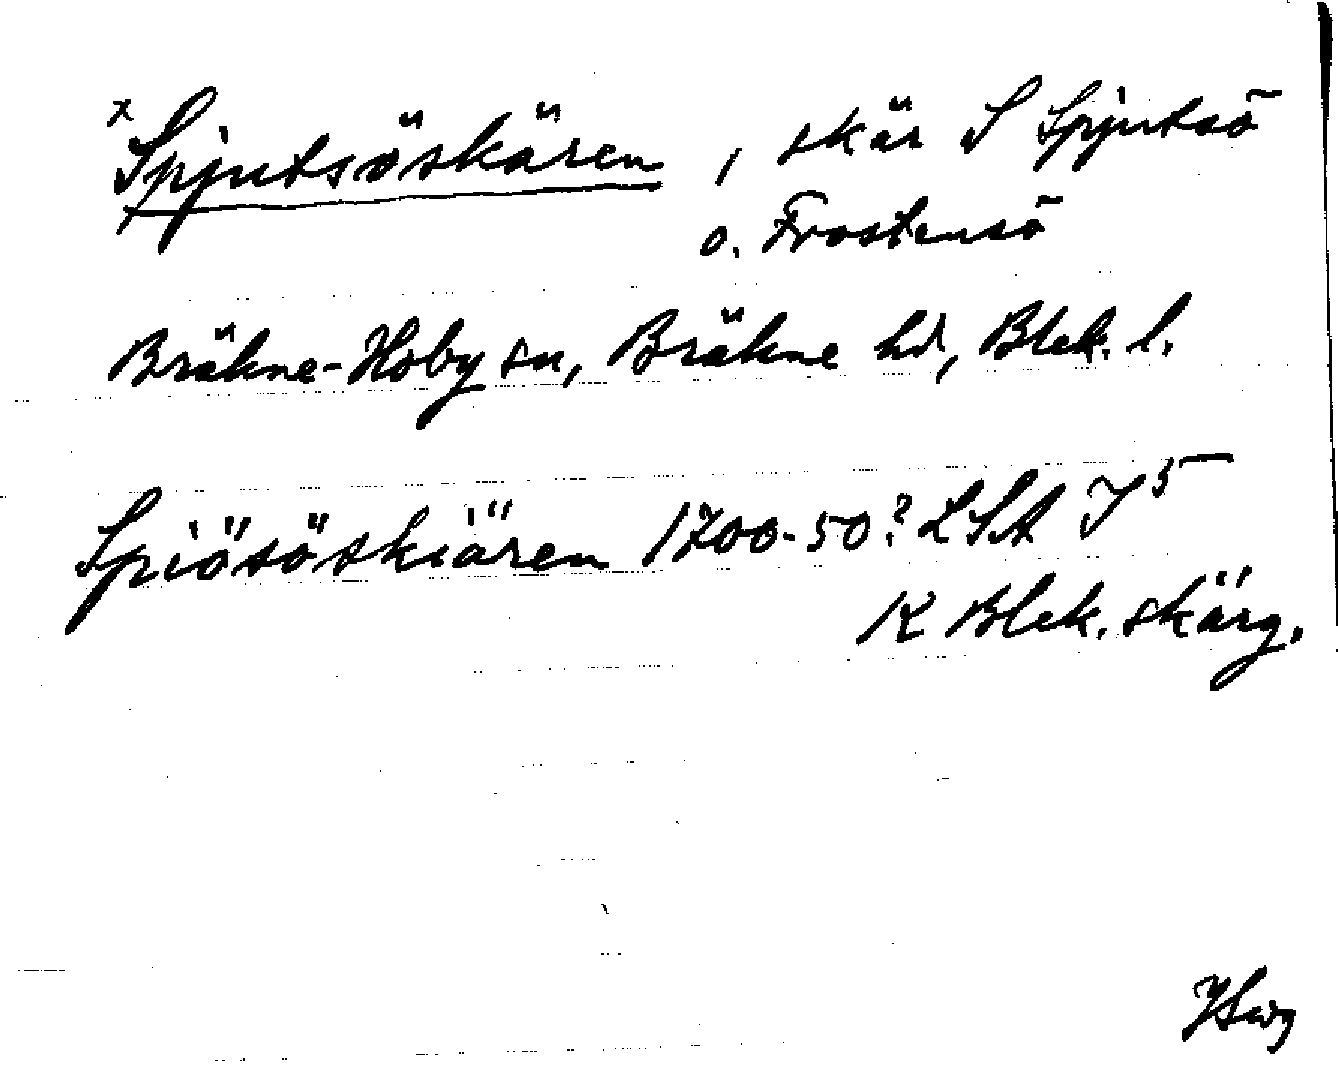 x Spjutsöskären, skär S Spjutsö
o. Frostensö
Bräkne-Hoby sn, Bräkne hd, Blek. l.
Spiösöskiären 1700-50? LSA I 5
K Blek. skärg.